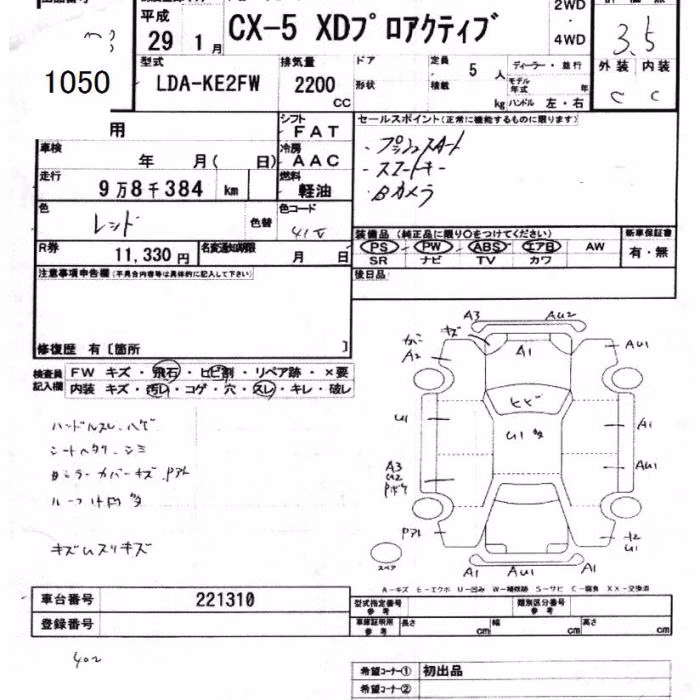 平成
29 1月
CX-5 XDプロアクティブ
2WD
・
4WD
3.5
外装 内装
C C
1050
型式
LDA-KE2FW
排気量
2200
CC
ドア
形状
定員 5 人
積載 kg
ディーラー・並行
モデル年式 年
ハンドル 左・右
用
シフト
FAT
冷房
AAC
車検
年 月( 日)
走行
9万8千384 km
燃料
軽油
セールスポイント(正常に機能するものに限ります)
・プッシュスタート
・スマートキー
・Bカメラ
色
レッド
色替
色コード
41V
R券
11,330円
名変通知期限
月 日
装備品(純正品に限り○をつけてください)
PS PW ABS エアB AW
SR ナビ TV カワ
新車保証書
有・無
後日品
注意事項申告欄(不具合内容等は具体的に記入して下さい)
修復歴 有〔箇所 〕
検査員
記入欄
FW キズ・飛石・ヒビ割・リペア跡・×要
内装 キズ・汚レ・コゲ・穴・スレ・キレ・破レ
ハンドルスレ、ハゲ
シートヘタリ、シミ
カバーキズ
ルーフ
キズムスリキズ
A3 AU2
キズ
A2
A1
AU1
ヒビ
U1
U1多
A1
A3
U2
Pボケ
AU1
Pアト
U1
A1 AU1 A1
スペア
A-キズ E-エクボ U-凹み W-補修跡 S-サビ C-腐食 XX-交換済
車台番号
221310
登録番号
型式指定番号
参考
類別区分番号
参考
車庫証明用
参考
長さ cm
幅 cm
高さ cm
402
希望コーナー① 初出品
希望コーナー②